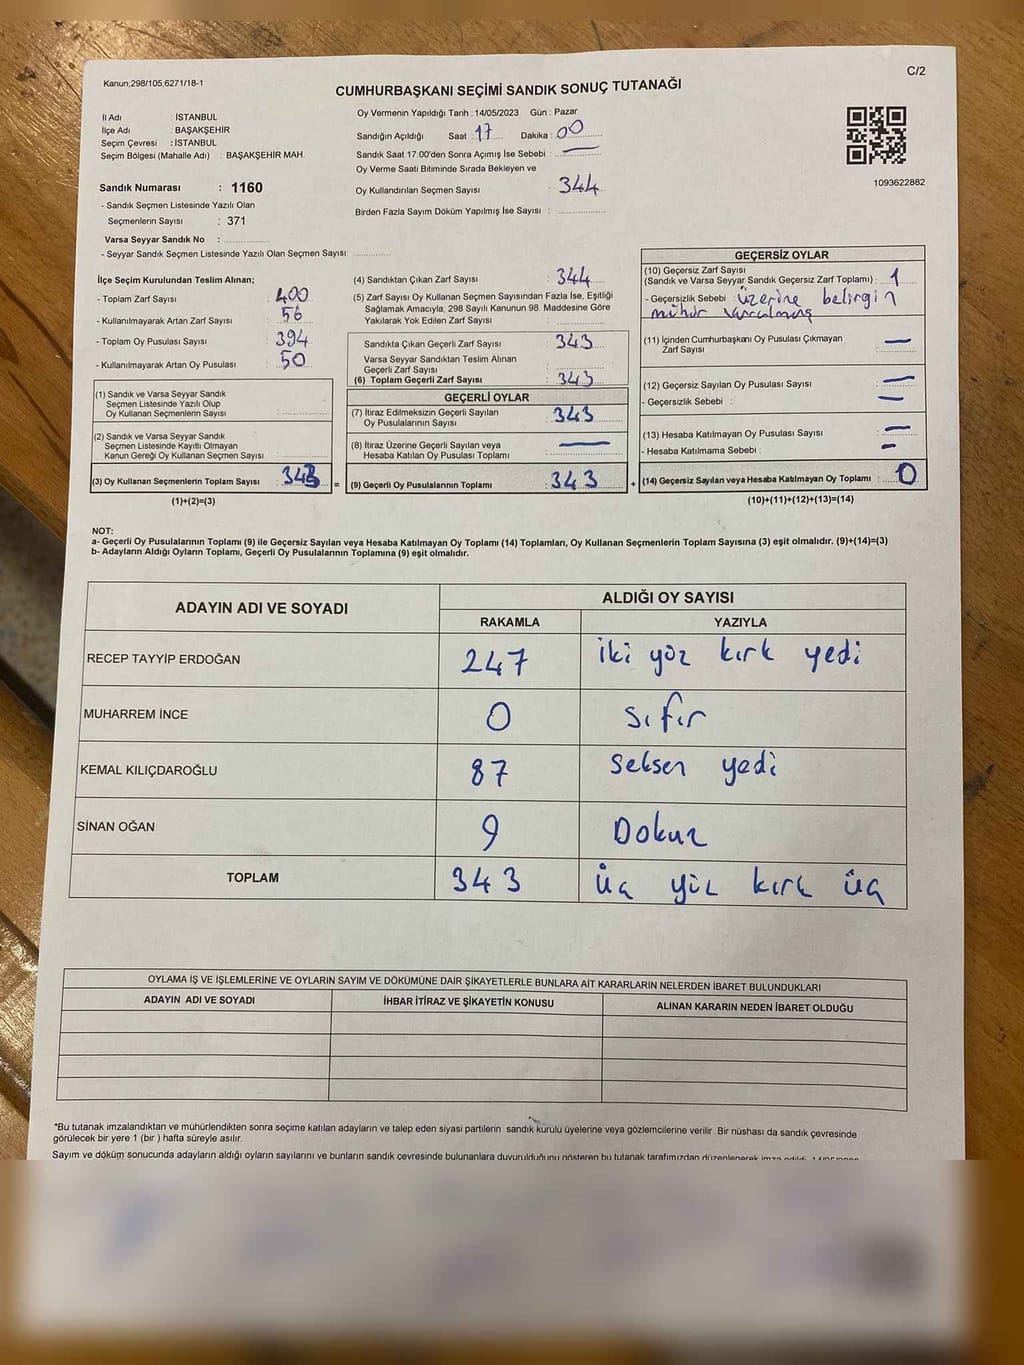 Kanun;298/105,6271/18-1
C/2
CUMHURBAŞKANI SEÇİMİ SANDIK SONUÇ TUTANAĞI
İl Adı : İSTANBUL
İlçe Adı : BAŞAKŞEHİR
Seçim Çevresi : İSTANBUL
Seçim Bölgesi (Mahalle Adı) : BAŞAKŞEHİR MAH.
Sandık Numarası : 1160
- Sandık Seçmen Listesinde Yazılı Olan
Seçmenlerin Sayısı : 371
Varsa Seyyar Sandık No :
- Seyyar Sandık Seçmen Listesinde Yazılı Olan Seçmen Sayısı:
Oy Vermenin Yapıldığı Tarih : 14/05/2023 Gün : Pazar
Sandığın Açıldığı Saat : 17 Dakika : 00
Sandık Saat 17:00'den Sonra Açılmış İse Sebebi : —
Oy Verme Saati Bitiminde Sırada Bekleyen ve
Oy Kullandırılan Seçmen Sayısı : 344
Birden Fazla Sayım Döküm Yapılmış İse Sayısı :
1093622882
İlçe Seçim Kurulundan Teslim Alınan;
- Toplam Zarf Sayısı : 400
- Kullanılmayarak Artan Zarf Sayısı : 56
- Toplam Oy Pusulası Sayısı : 394
- Kullanılmayarak Artan Oy Pusulası : 50
(1) Sandık ve Varsa Seyyar Sandık
Seçmen Listesinde Yazılı Olup
Oy Kullanan Seçmenlerin Sayısı :
(2) Sandık ve Varsa Seyyar Sandık
Seçmen Listesinde Kayıtlı Olmayan
Kanun Gereği Oy Kullanan Seçmen Sayısı :
(3) Oy Kullanan Seçmenlerin Toplam Sayısı : 343
(1)+(2)=(3)
(4) Sandıktan Çıkan Zarf Sayısı : 344
(5) Zarf Sayısı Oy Kullanan Seçmen Sayısından Fazla İse, Eşitliği
Sağlamak Amacıyla; 298 Sayılı Kanunun 98. Maddesine Göre
Yakılarak Yok Edilen Zarf Sayısı :
Sandıkta Çıkan Geçerli Zarf Sayısı : 343
Varsa Seyyar Sandıktan Teslim Alınan
Geçerli Zarf Sayısı :
(6) Toplam Geçerli Zarf Sayısı : 343
GEÇERLİ OYLAR
(7) İtiraz Edilmeksizin Geçerli Sayılan
Oy Pusulalarının Sayısı : 343
(8) İtiraz Üzerine Geçerli Sayılan veya
Hesaba Katılan Oy Pusulası Toplamı : —
= (9) Geçerli Oy Pusulalarının Toplamı : 343 +
GEÇERSİZ OYLAR
(10) Geçersiz Zarf Sayısı
(Sandık ve Varsa Seyyar Sandık Geçersiz Zarf Toplamı) : 1
- Geçersizlik Sebebi : üzerine belirgin
mühür
(11) İçinden Cumhurbaşkanı Oy Pusulası Çıkmayan
Zarf Sayısı : —
(12) Geçersiz Sayılan Oy Pusulası Sayısı : —
- Geçersizlik Sebebi : —
(13) Hesaba Katılmayan Oy Pusulası Sayısı : —
- Hesaba Katılmama Sebebi : —
(14) Geçersiz Sayılan veya Hesaba Katılmayan Oy Toplamı : 0
(10)+(11)+(12)+(13)=(14)
NOT:
a- Geçerli Oy Pusulalarının Toplamı (9) ile Geçersiz Sayılan veya Hesaba Katılmayan Oy Toplamı (14) Toplamları, Oy Kullanan Seçmenlerin Toplam Sayısına (3) eşit olmalıdır. (9)+(14)=(3)
b- Adayların Aldığı Oyların Toplamı, Geçerli Oy Pusulalarının Toplamına (9) eşit olmalıdır.
ADAYIN ADI VE SOYADI
ALDIĞI OY SAYISI
RAKAMLA YAZIYLA
RECEP TAYYİP ERDOĞAN 247 iki yüz kırk yedi
MUHARREM İNCE 0 sıfır
KEMAL KILIÇDAROĞLU 87 seksen yedi
SİNAN OĞAN 9 Dokuz
TOPLAM 343 üç yüz kırk üç
OYLAMA İŞ VE İŞLEMLERİNE VE OYLARIN SAYIM VE DÖKÜMÜNE DAİR ŞİKAYETLERLE BUNLARA AİT KARARLARIN NELERDEN İBARET BULUNDUKLARI
ADAYIN ADI VE SOYADI İHBAR İTİRAZ VE ŞİKAYETİN KONUSU ALINAN KARARIN NEDEN İBARET OLDUĞU
*Bu tutanak imzalandıktan ve mühürlendikten sonra seçime katılan adayların ve talep eden siyasi partilerin sandık kurulu üyelerine veya gözlemcilerine verilir. Bir nüshası da sandık çevresinde
görülecek bir yere 1 (bir ) hafta süreyle asılır.
Sayım ve döküm sonucunda adayların aldığı oyların sayılarını ve bunların sandık çevresinde bulunanlara duyurulduğunu gösteren bu tutanak tarafımızdan düzenlenerek imza edildi.